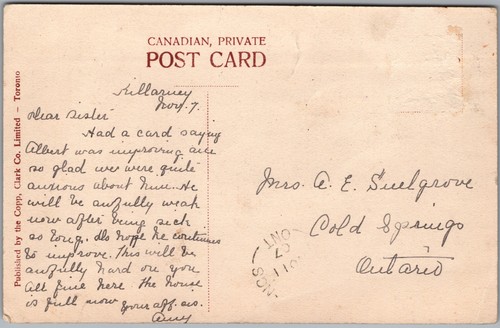 CANADIAN, PRIVATE
POST CARD
Published by the Copp, Clark Co. Limited – Toronto
Killarney
Nov. 7.
Dear Sister
Had a card saying
Albert was improving are
so glad we were quite
anxious about him. He
will be awfully weak
now after being sick
so long. do hope he continues
to improve. This will be
awfully hard on you
All fine here the house
is full now your aff. sis.
Amy
Mrs. A. E. Snelgrove
Cold Springs
Ontario
ONT
07